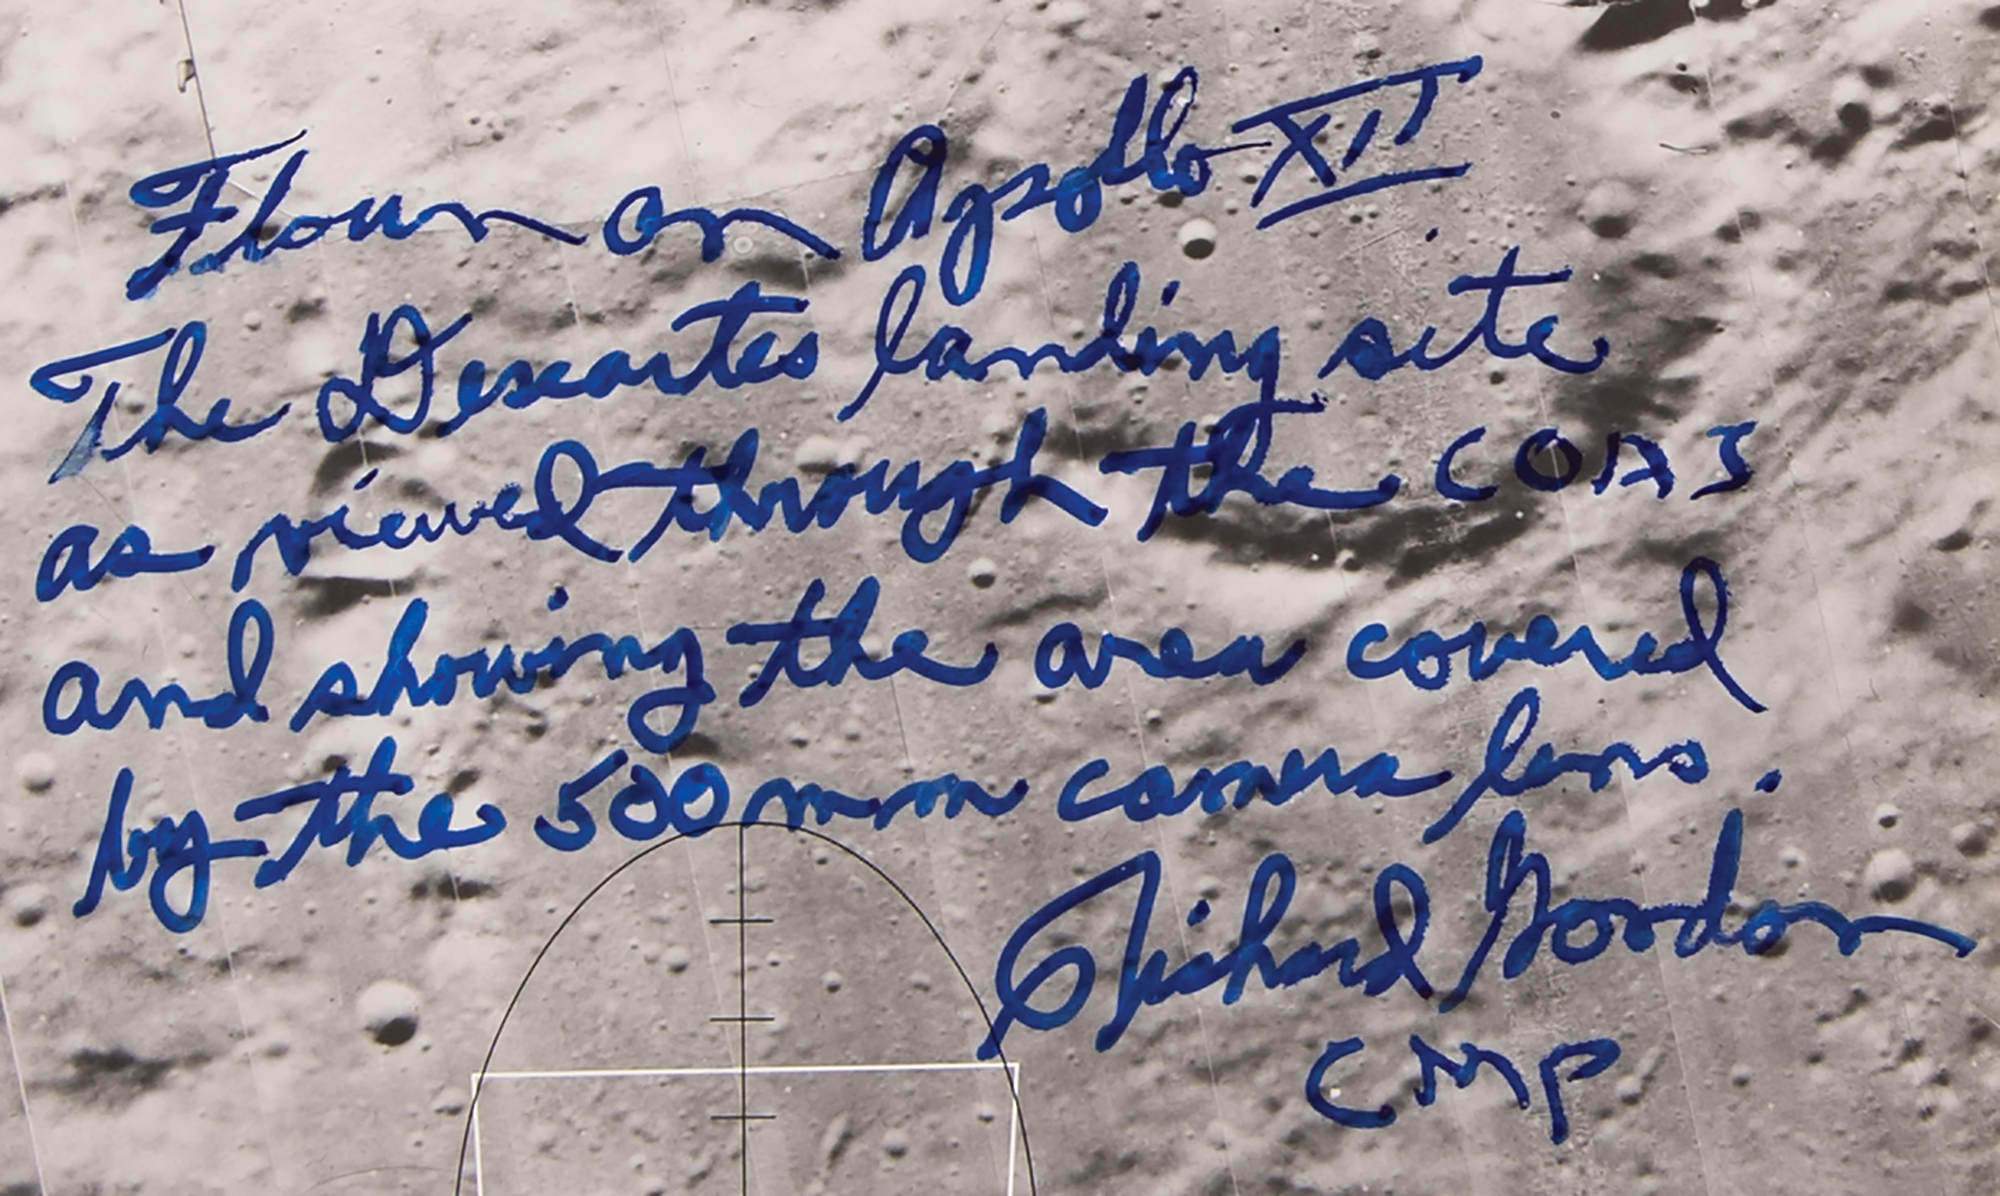 Flown on Apollo XII
The Descartes landing site
as viewed through the COAS
and showing the area covered
by the 500mm camera lens.
Richard Gordon
CMP